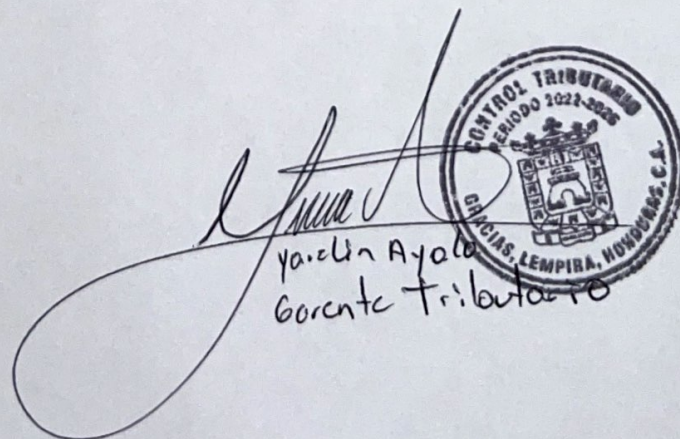 CONTROL TRIBUTARIO
PERIODO 2022-2026
GRACIAS, LEMPIRA, HONDURAS, C.A.
Ayala
Gerente Tributario